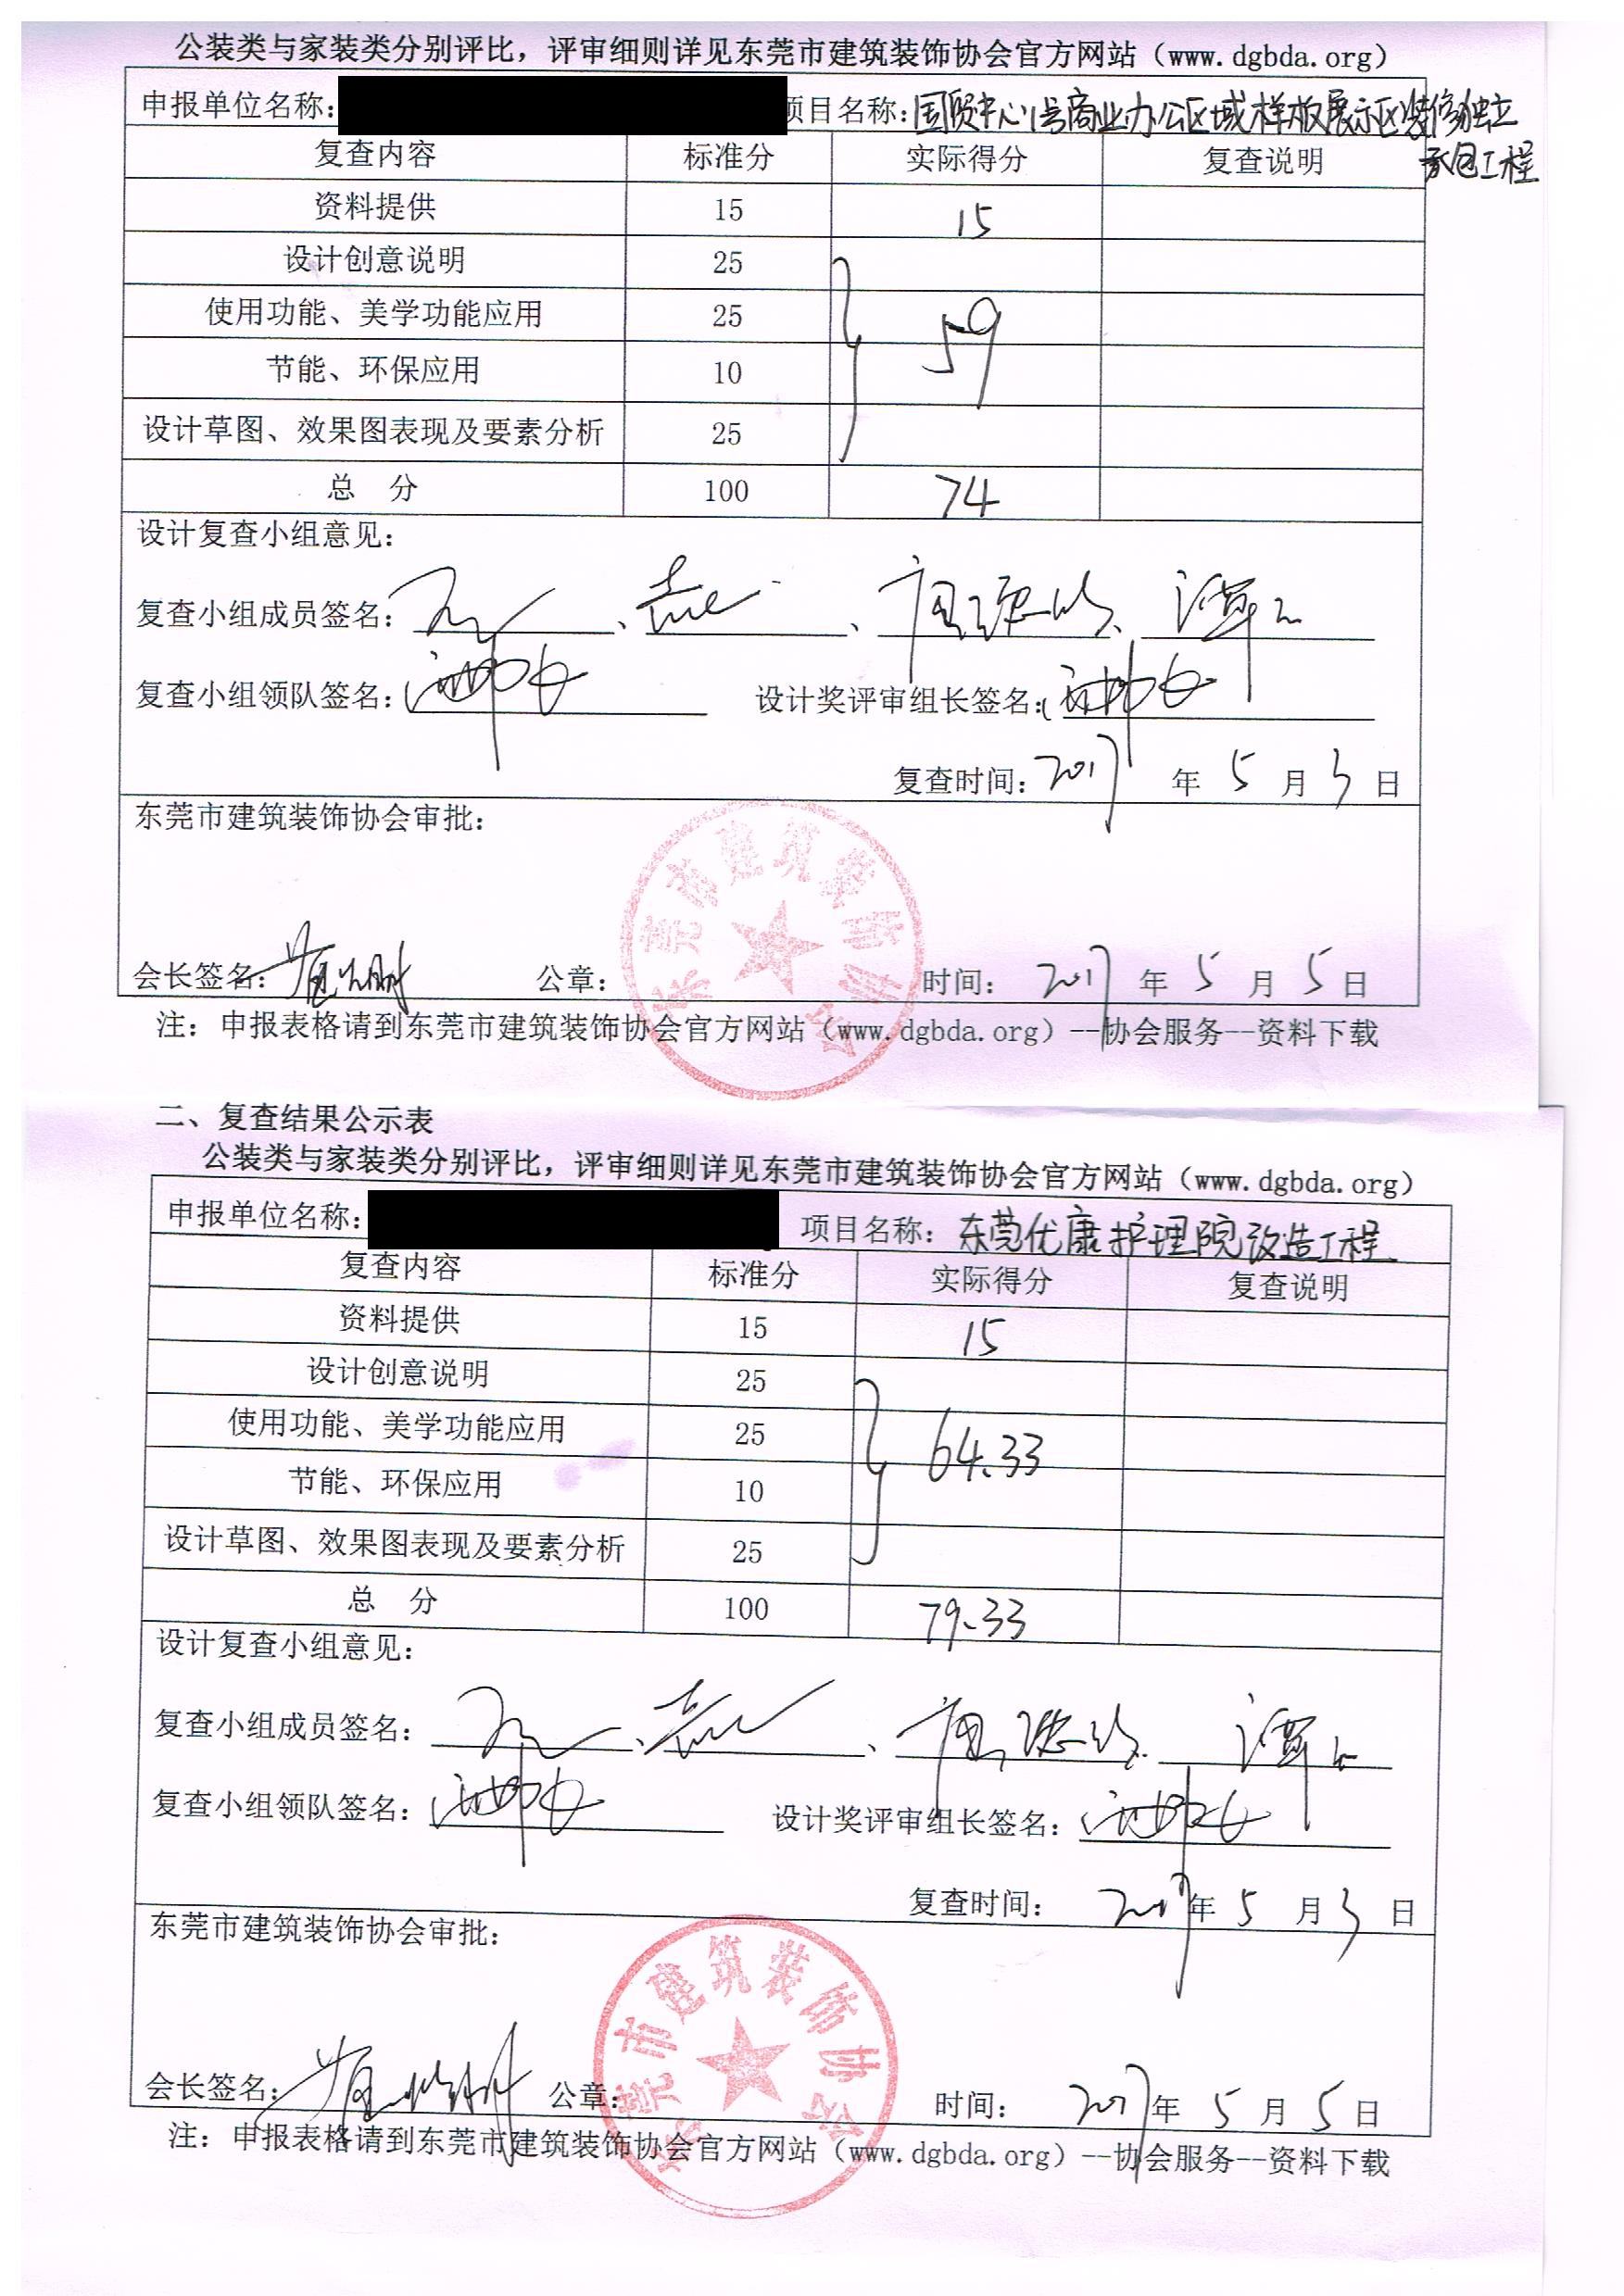 公装类与家装类分别评比，评审细则详见东莞市建筑装饰协会官方网站（www.dgbda.org）
申报单位名称： 项目名称：国贸中心1号商业办公区域样板展示区装修独立
承包工程
复查内容 标准分 实际得分 复查说明
资料提供 15 15
设计创意说明 25
使用功能、美学功能应用 25 59
节能、环保应用 10
设计草图、效果图表现及要素分析 25
总 分 100 74
设计复查小组意见：
复查小组成员签名： 、 、 、
复查小组领队签名： 设计奖评审组长签名：
复查时间：2017 年 5 月 3 日
东莞市建筑装饰协会审批：
东莞市建筑装饰协会
会长签名： 公章： 时间： 2017 年 5 月 5 日
注：申报表格请到东莞市建筑装饰协会官方网站（www.dgbda.org）--协会服务--资料下载
二、复查结果公示表
公装类与家装类分别评比，评审细则详见东莞市建筑装饰协会官方网站（www.dgbda.org）
申报单位名称： 项目名称：东莞优康护理院改造工程
复查内容 标准分 实际得分 复查说明
资料提供 15 15
设计创意说明 25
使用功能、美学功能应用 25 64.33
节能、环保应用 10
设计草图、效果图表现及要素分析 25
总 分 100 79.33
设计复查小组意见：
复查小组成员签名： 、 、 、
复查小组领队签名： 设计奖评审组长签名：
复查时间： 2017 年 5 月 3 日
东莞市建筑装饰协会审批：
东莞市建筑装饰协会
会长签名： 公章： 时间： 2017 年 5 月 5 日
注：申报表格请到东莞市建筑装饰协会官方网站（www.dgbda.org）--协会服务--资料下载